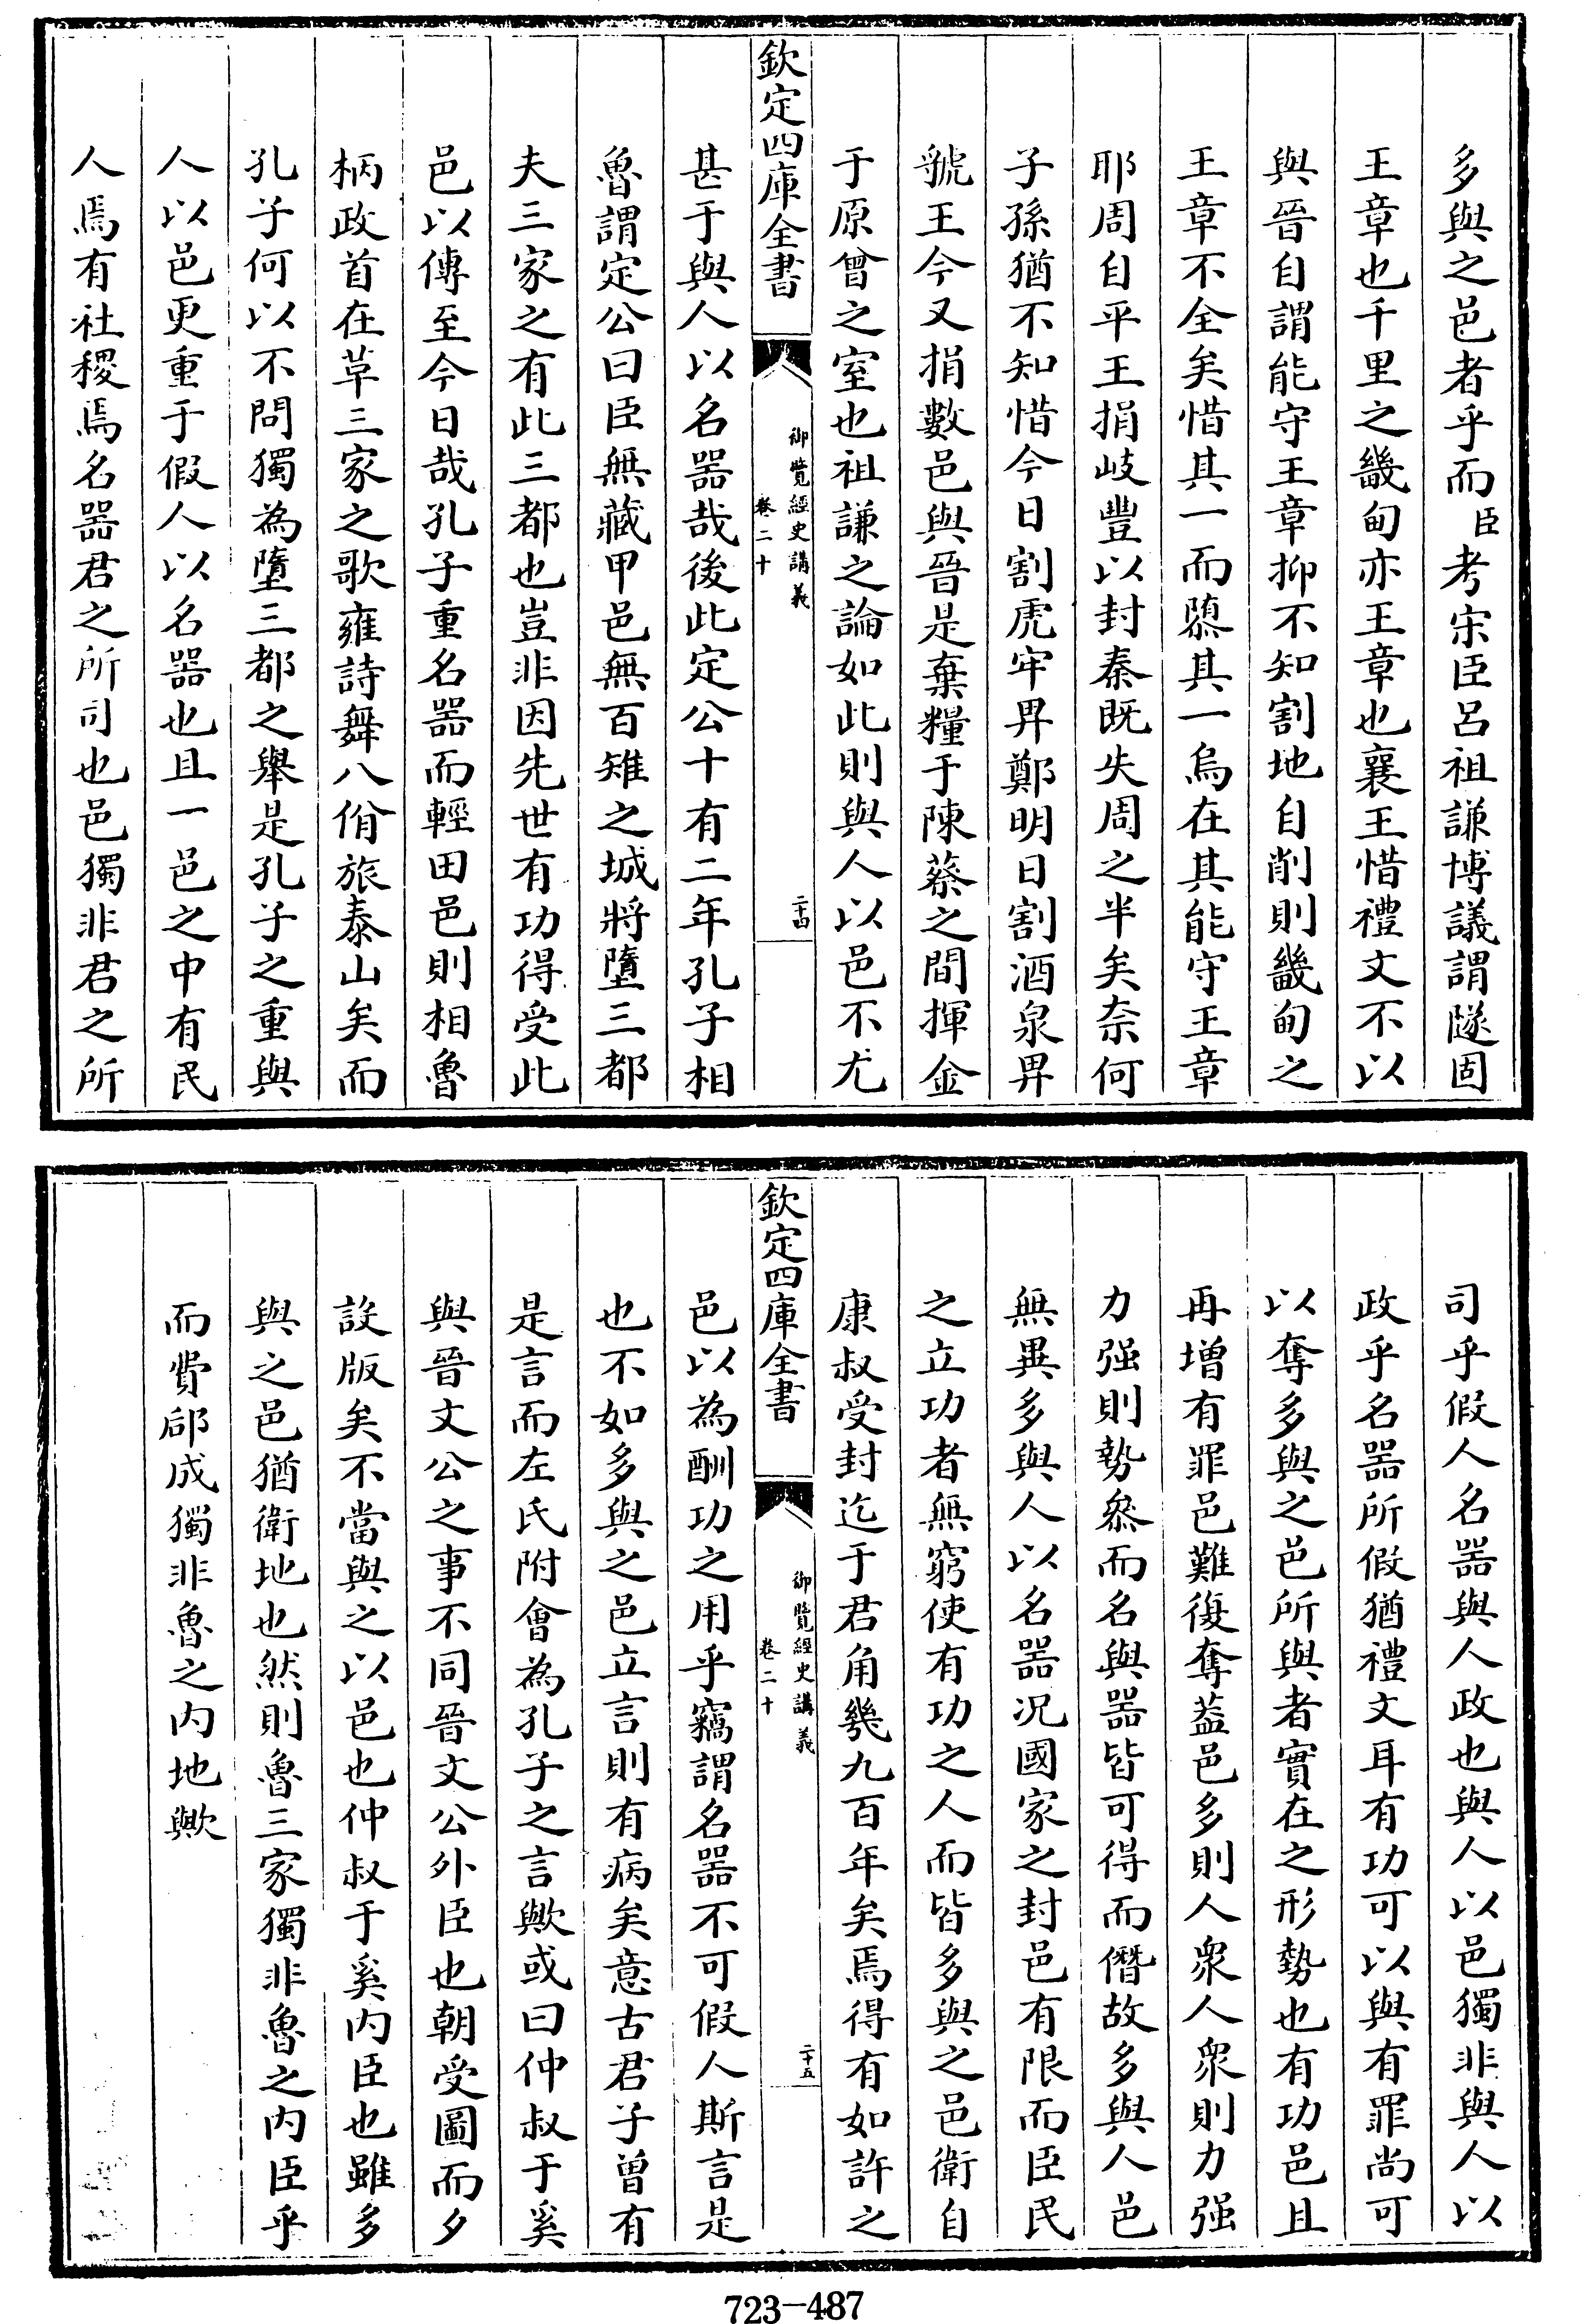 多與之邑者乎而臣考宋臣呂祖謙博議謂隧固
王章也千里之畿甸亦王章也襄王惜禮文不以
與晉自謂能守王章抑不知割地自削則畿甸之
王章不全矣惜其一而隳其一烏在其能守王章
耶周自平王捐岐豐以封秦既失周之半矣奈何
子孫猶不知惜今日割虎牢畀鄭明日割酒泉畀
虢王今又捐數邑與晉是棄糧于陳蔡之間揮金
于原曾之室也祖謙之論如此則與人以邑不尤
欽定四庫全書
御覽經史講義
卷二十
二十四
甚于與人以名器哉後此定公十有二年孔子相
魯謂定公曰臣無藏甲邑無百雉之城將墮三都
夫三家之有此三都也豈非因先世有功得受此
邑以傳至今日哉孔子重名器而輕田邑則相魯
柄政首在草三家之歌雍詩舞八佾旅泰山矣而
孔子何以不問獨為墮三都之舉是孔子之重與
人以邑更重于假人以名器也且一邑之中有民
人焉有社稷焉名器君之所司也邑獨非君之所
司乎假人名器與人政也與人以邑獨非與人以
政乎名器所假猶禮文耳有功可以與有罪尚可
以奪多與之邑所與者實在之形勢也有功邑且
再增有罪邑難復奪蓋邑多則人衆人衆則力强
力强則勢叅而名與器皆可得而僭故多與人邑
無異多與人以名器况國家之封邑有限而臣民
之立功者無窮使有功之人而皆多與之邑衛自
康叔受封迄于君角幾九百年矣焉得有如許之
欽定四庫全書
御覽經史講義
卷二十
二十五
邑以為酬功之用乎竊謂名器不可假人斯言是
也不如多與之邑立言則有病矣意古君子曾有
是言而左氏附會為孔子之言歟或曰仲叔于奚
與晉文公之事不同晉文公外臣也朝受圖而夕
設版矣不當與之以邑也仲叔于奚内臣也雖多
與之邑猶衛地也然則魯三家獨非魯之内臣乎
而費郈成獨非魯之内地歟
723-487